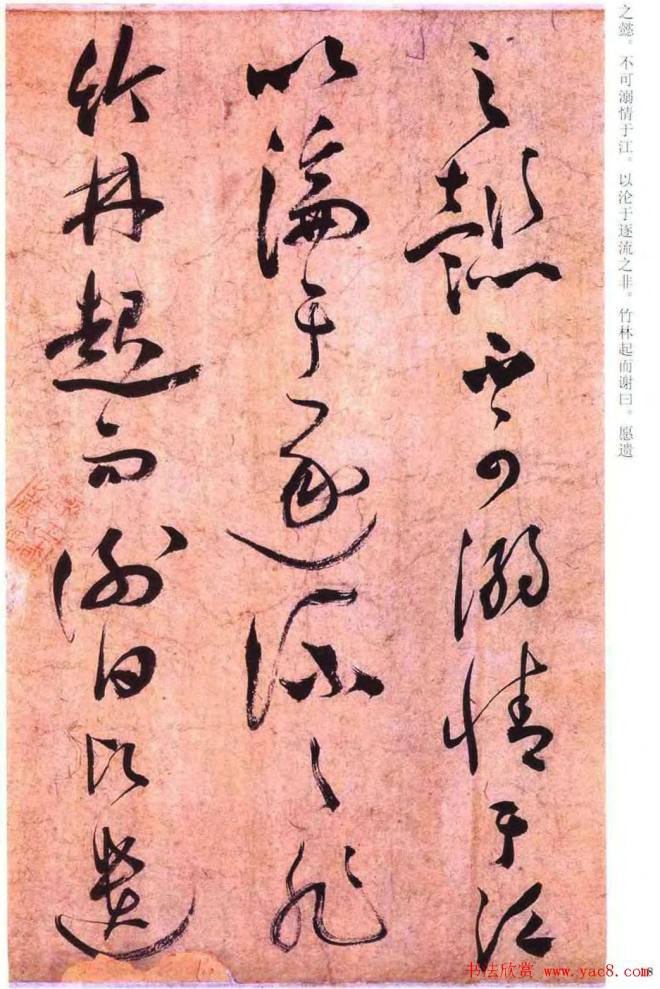 之懿。不可溺情于江。以沦于逐流之非。竹林起而谢曰。愿遗
之懿不可溺情于江
以淪于逐流之非
竹林起而謝曰願遺
书法欣赏 www.yac8.com
8